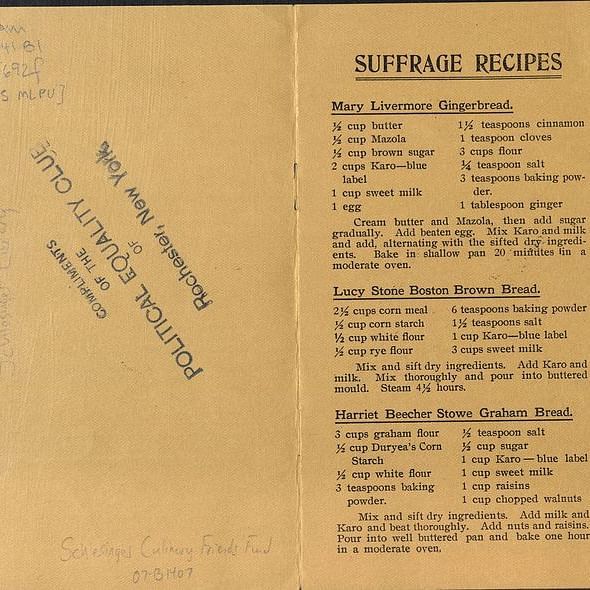 41 B1
692f
MLPU]
COMPLIMENTS
OF THE
POLITICAL EQUALITY CLUB
OF
Rochester, New York.
Schlesinger Culinary Friends Fund
07-B1407
SUFFRAGE RECIPES
Mary Livermore Gingerbread.
½ cup butter
½ cup Mazola
½ cup brown sugar
2 cups Karo—blue
label
1 cup sweet milk
1 egg
1½ teaspoons cinnamon
1 teaspoon cloves
3 cups flour
¼ teaspoon salt
3 teaspoons baking pow-
der.
1 tablespoon ginger
Cream butter and Mazola, then add sugar
gradually. Add beaten egg. Mix Karo and milk
and add, alternating with the sifted dry ingredi-
ents. Bake in shallow pan 20 minutes in a
moderate oven.
Lucy Stone Boston Brown Bread.
2½ cups corn meal
½ cup corn starch
½ cup white flour
½ cup rye flour
6 teaspoons baking powder
1½ teaspoons salt
1 cup Karo—blue label
3 cups sweet milk
Mix and sift dry ingredients. Add Karo and
milk. Mix thoroughly and pour into buttered
mould. Steam 4½ hours.
Harriet Beecher Stowe Graham Bread.
3 cups graham flour
½ cup Duryea's Corn
Starch
½ cup white flour
3 teaspoons baking
powder.
½ teaspoon salt
½ cup sugar
1 cup Karo—blue label
1 cup sweet milk
1 cup raisins
1 cup chopped walnuts
Mix and sift dry ingredients. Add milk and
Karo and beat thoroughly. Add nuts and raisins.
Pour into well buttered pan and bake one hour
in a moderate oven.